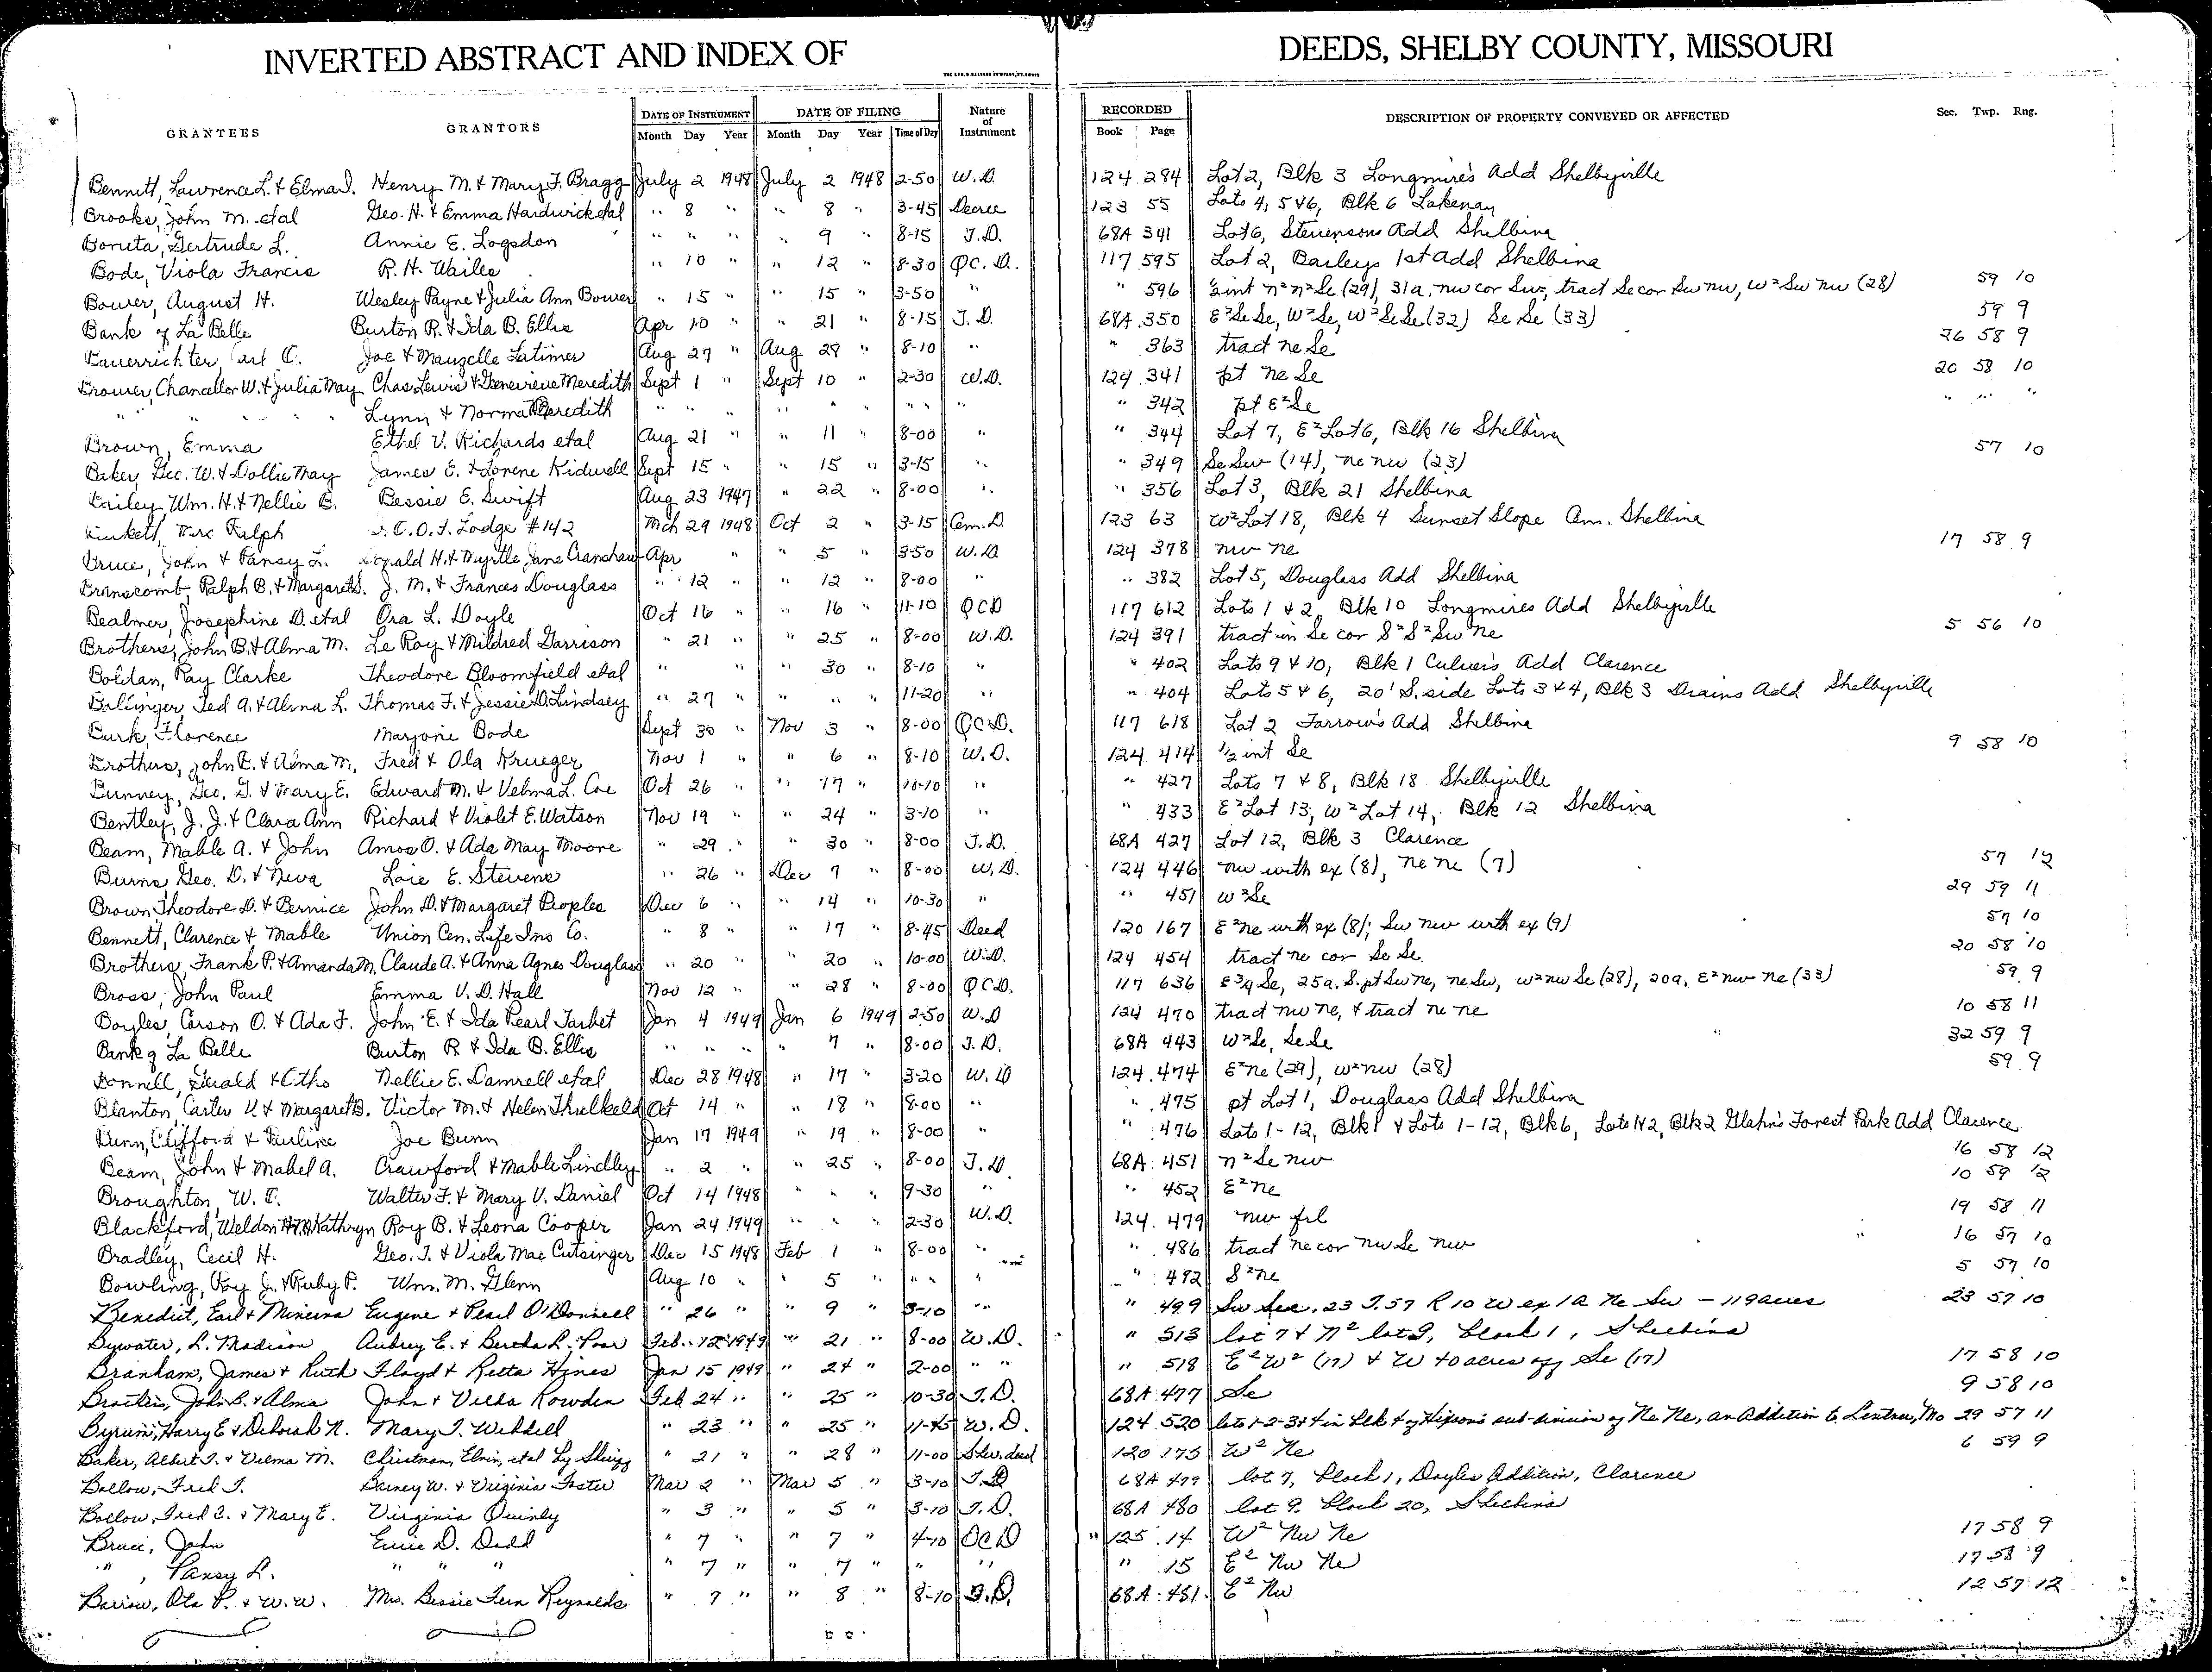 INVERTED ABSTRACT AND INDEX OF DEEDS, SHELBY COUNTY, MISSOURI
GRANTEES GRANTORS DATE OF INSTRUMENT Month Day Year DATE OF FILING Month Day Year Time of Day Nature of Instrument RECORDED Book Page DESCRIPTION OF PROPERTY CONVEYED OR AFFECTED Sec. Twp. Rng.
Bennett, Lawrence L. & Elma J. Henry M. & Mary F. Bragg July 2 1948 July 2 1948 2-50 W.D. 124 284 Lot 2, Blk 3 Longmire's Add Shelbyville
Brooks, John M. etal Geo. H. & Emma Hardwick etal " 8 " " 8 " 3-45 Decree 123 55 Lots 4, 5 & 6, Blk 6 Lakenan
Boruta, Gertrude L. Annie E. Logsdon " " " " 9 " 8-15 T.D. 68A 341 Lot 6, Stevensons Add Shelbina
Bode, Viola Francis R. H. Wailes " 10 " " 12 " 8-30 QC.D. 117 595 Lot 2, Baileys 1st Add Shelbina
Bower, August H. Wesley Payne & Julia Ann Bower " 15 " " 15 " 3-50 " " 596 int N²N²Se (29), 31a, nw cor Sw, tract Se cor Sw nw, W²Sw nw (28) 59 10
Bank of La Belle Burton R. & Ida B. Ellis Apr 10 " " 21 " 8-15 T.D. 68A 350 E²Se Se, W²Se, W²SeSe (32) Se Se (33) 59 9
Bauerrichter, Carl C. Joe & Mauzelle Latimer Aug 27 " Aug 28 " 8-10 " " 363 tract ne Se 26 58 9
Brower, Chancellor W. & Julia May Chas Lewis & Genevieve Meredith Sept 1 " Sept 10 " 2-30 W.D. 124 341 pt ne Se 20 58 10
" " " " Lynn & Norma Meredith " " " " " " " " " " 342 pt E²Se " " "
Brown, Emma Ethel V. Richards etal Aug 21 " " 11 " 8-00 " " 344 Lot 7, E²Lot 6, Blk 16 Shelbina
Baker, Geo. W. & Dollie May James E. & Lorene Kidwell Sept 15 " " 15 " 3-15 " " 349 Se Sw (14), ne nw (23) 57 10
Bailey, Wm. H. & Nellie B. Bessie E. Swift Aug 23 1947 " 22 " 8-00 " " 356 Lot 3, Blk 21 Shelbina
Burkett, Mrs Ralph I.O.O.F. Lodge #142 Mch 29 1948 Oct 2 " 3-15 Cem. D. 123 63 W²Lot 18, Blk 4 Sunset Slope Cem. Shelbina
Bruce, John & Pansy L. Donald H. & Myrtle Jane Cranshaw Apr " " 5 " 3-50 W.D. 124 378 nw ne 17 58 9
Branscomb, Ralph B. & Margaret S. J. M. & Frances Douglass " 12 " " 12 " 8-00 " " 382 Lot 5, Douglass Add Shelbina
Bealmer, Josephine D. etal Ora L. Doyle Oct 16 " " 16 " 11-10 QCD 117 612 Lots 1 & 2, Blk 10 Longmires Add Shelbyville
Brothers, John B. & Alma M. Le Roy & Mildred Garrison " 21 " " 25 " 8-00 W.D. 124 391 tract in Se cor S²S²Sw ne 5 56 10
Boldan, Ray Clarke Theodore Bloomfield etal " " " 30 " 8-10 " " 402 Lots 9 & 10, Blk 1 Culver's Add Clarence
Ballinger, Ted A. & Alma L. Thomas F. & Jessie D. Lindsey " 27 " " " " 11-20 " " 404 Lots 5 & 6, 20' S. side Lots 3 & 4, Blk 3 Drains Add Shelbyville
Burk, Florence Marjorie Bode Sept 30 " Nov 3 " 8-00 QCD. 117 618 Lot 2 Farrow's Add Shelbina
Brothers, John B. & Alma M. Fred & Ola Krueger Nov 1 " " 6 " 8-10 W.D. 124 414 ½ int Se 9 58 10
Bunney, Geo. G. & Mary E. Edward M. & Velma L. Coe Oct 26 " " 17 " 10-10 " " 427 Lots 7 & 8, Blk 18 Shelbyville
Bentley, J. J. & Clara Ann Richard & Violet E. Watson Nov 19 " " 24 " 3-10 " " 433 E²Lot 13, W²Lot 14, Blk 12 Shelbina
Beam, Mable A. & John Amos O. & Ada May Moore " 29 " " 30 " 8-00 T.D. 68A 427 Lot 12, Blk 3 Clarence
Burns, Geo. D. & Neva Loie E. Stevens " 26 " Dec 7 " 8-00 W.D. 124 446 nw with ex (8), ne ne (7) 57 12
Brown, Theodore D. & Bernice John D. & Margaret Peoples Dec 6 " " 14 " 10-30 " " 451 W²Se 29 59 11
Bennett, Clarence & Mable Union Cen. Life Ins Co. " 8 " " 17 " 8-45 Deed 120 167 E²ne with ex (8); Sw nw with ex (9) 57 10
Brothers, Frank P. & Amanda M. Claude A. & Anna Agnes Douglass " 20 " " 20 " 10-00 W.D. 124 454 tract ne cor Se Se. 20 58 10
Bross, John Paul Emma V. D. Hall Nov 12 " " 28 " 8-00 QCD. 117 636 E¾ Se, 25a. S. pt Sw ne, ne Sw, W²nw Se (28), 20a. E²nw ne (33) 59 9
Boyles, Carson O. & Ada F. John E. & Ida Pearl Tarbet Jan 4 1949 Jan 6 1949 2-50 W.D 124 470 tract nw ne, & tract ne ne 10 58 11
Bank of La Belle Burton R & Ida B. Ellis " " " " 7 " 8-00 T.D. 68A 443 W²Se, SeSe 32 59 9
Bonnell, Gerald & Otho Nellie E. Damrell etal Dec 28 1948 " 17 " 3-20 W.D 124 474 E²ne (29), W²nw (28) 59 9
Blanton, Carter V. & Margaret B. Victor M. & Helen Thulkeld Oct 14 " " 18 " 8-00 " " 475 pt Lot 1, Douglass Add Shelbina
Bunn, Clifford & Pauline Joe Bunn Jan 17 1949 " 19 " 8-00 " " 476 Lots 1-12, Blk 1 & Lots 1-12, Blk 6, Lots 1&2, Blk 2 Glahn's Forest Park Add Clarence
Beam, John & Mabel A. Crawford & Mable Lindley " 2 " " 25 " 8-00 T.D. 68A 451 N²Se nw 16 58 12
Broughton, W. C. Walter F. & Mary V. Daniel Oct 14 1948 " " " 9-30 " " 452 E²ne 10 59 12
Blackford, Weldon & Kathryn Roy B. & Leona Cooper Jan 24 1949 " " " 2-30 W.D. 124 479 nw frl 19 58 11
Bradley, Cecil H. Geo. T. & Viola Mae Cutsinger Dec 15 1948 Feb 1 " 8-00 " " 486 tract ne cor nw Se nw 16 57 10
Bowling, Roy J. & Ruby P. Wm. M. Glenn Aug 10 " " 5 " " " " " 492 S²ne 5 57 10
Benedict, Earl & Minerva Eugene & Pearl O'Donnell " 26 " " 9 " 3-10 " " 499 Sw Sec. 23 T.57 R 10 W ex 1a Ne Sw - 119 acres 23 57 10
Bywater, L. Madison Aubrey E. & Bertha L. Poor Feb. 12 1949 " 21 " 8-00 W.D. " 513 lot 7 & N² lot 8, block 1, Shelbina
Branham, James & Ruth Floyd & Retta Hines Jan 15 1949 " 24 " 2-00 " " " 518 E²W² (17) & W 40 acres off Se (17) 17 58 10
Brothers, John B. & Alma John & Velda Rowden Feb 24 " " 25 " 10-30 T.D. 68A 477 Se 9 58 10
Byrum, Harry E & Deborah N. Mary J. Weddell " 23 " " 25 " 11-45 W.D. 124 520 lots 1-2-3&4 in blk 4 of Hixson's sub-division of Ne Ne, an Addition to Lentner, Mo 29 57 11
Baker, Albert T. & Velma M. Christman, Elvin, etal by Sheriff " 21 " " 28 " 11-00 Sher. deed 120 175 W² Ne 6 59 9
Bollow, Fred T. Barney W. & Virginia Foster Mar 2 " Mar 5 " 3-10 T.D 68A 479 lot 7, block 1, Doyles Addition, Clarence
Bollow, Fred C. & Mary E. Virginia Quinly " 3 " " 5 " 3-10 T.D. 68A 480 lot 9, block 20, Shelbina
Bruce, John Essie D. Dodd " 7 " " 7 " 4-10 QCD " 125 14 W² Nw Ne 17 58 9
" , Pansy L. " " " " 7 " " 7 " " " " 15 E² Nw Ne 17 58 9
Barrow, Ota P. & W.W. Mrs. Bessie Fern Reynolds " 7 " " 8 " 8-10 T.D. 68A 481 E² Nw 12 57 12